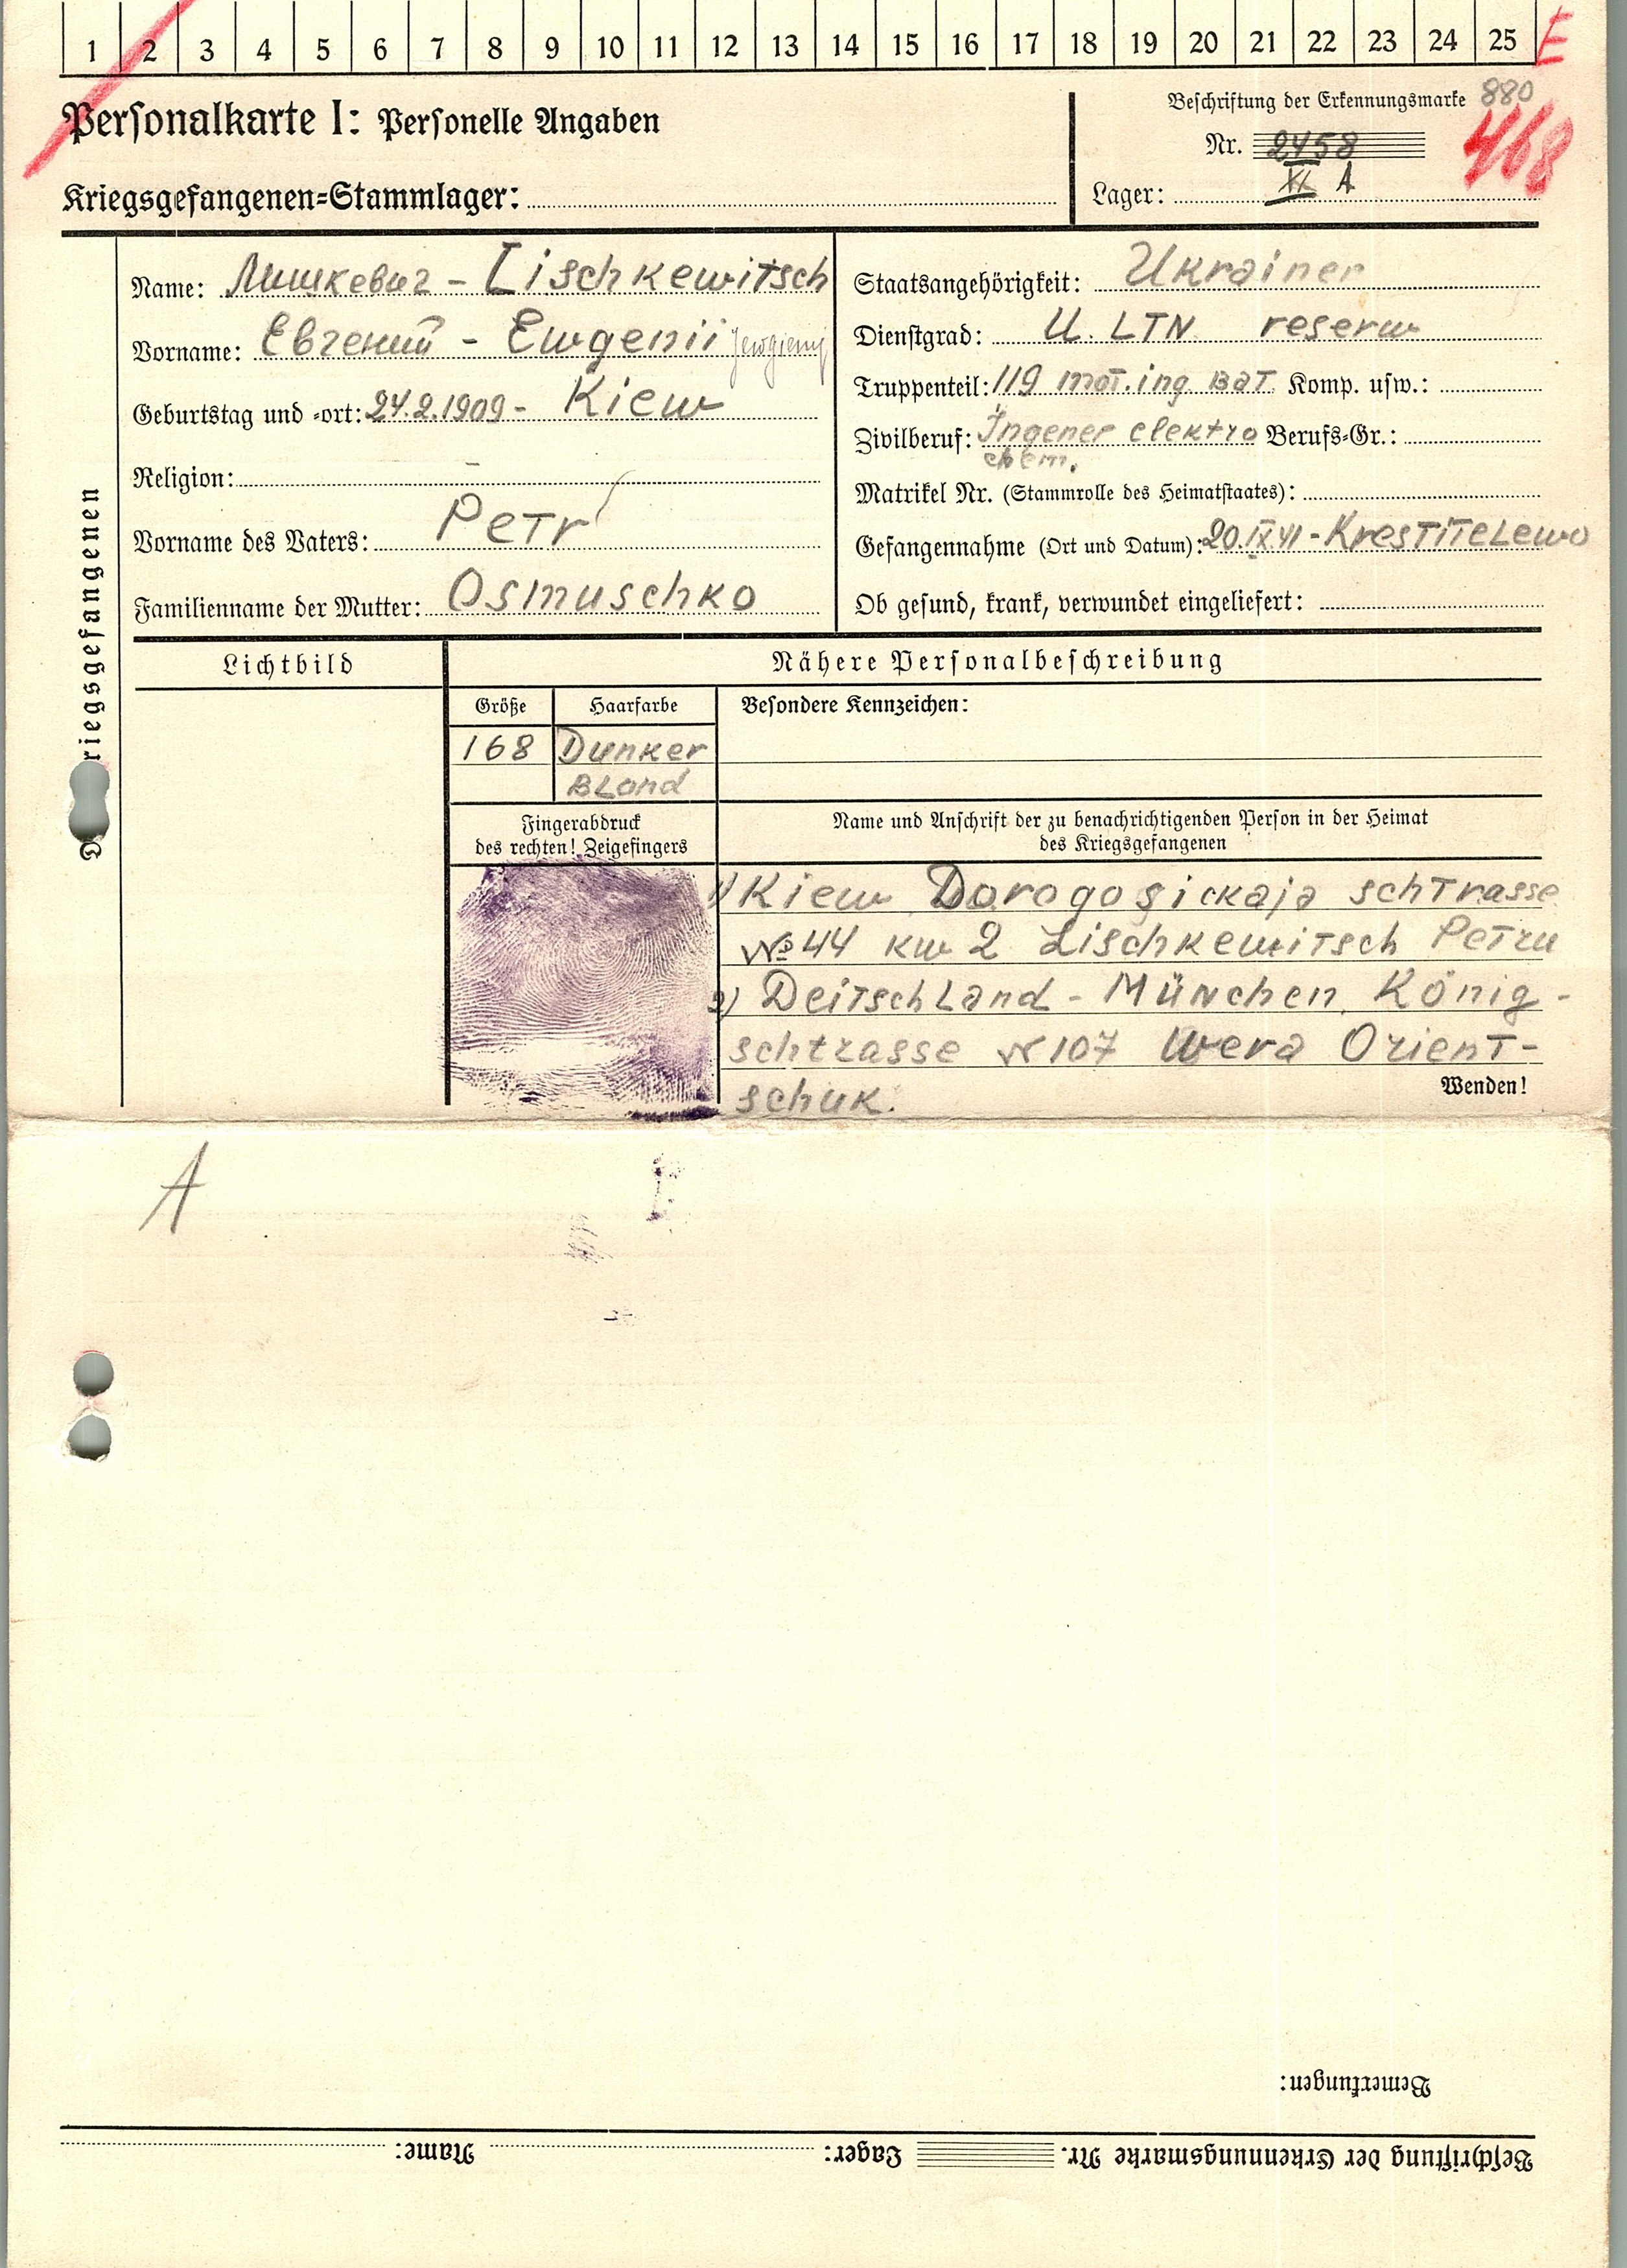 1 2 3 4 5 6 7 8 9 10 11 12 13 14 15 16 17 18 19 20 21 22 23 24 25 E
Personalkarte I: Personelle Angaben
Beschriftung der Erkennungsmarke 880
Nr. 2458 468
Kriegsgefangenen-Stammlager:
Lager: XI A
Des Kriegsgefangenen
Name: Лишкевич - Lischkewitsch
Vorname: Евгений - Ewgenii Jewgienij
Geburtstag und -ort: 24.2.1909 - Kiew
Religion: -
Vorname des Vaters: Petr
Familienname der Mutter: Osmuschko
Staatsangehörigkeit: Ukrainer
Dienstgrad: U. LTN reserw
Truppenteil: 119 mot. ing Bat. Komp. usw.:
Zivilberuf: Ingener elektro Berufs-Gr.:
chem.
Matrikel Nr. (Stammrolle des Heimatstaates):
Gefangennahme (Ort und Datum): 20.IX.41 - Krestitelewo
Ob gesund, krank, verwundet eingeliefert:
Lichtbild
Nähere Personalbeschreibung
Größe Haarfarbe Besondere Kennzeichen:
168 Dunker
Blond
Fingerabdruck
des rechten! Zeigefingers
Name und Anschrift der zu benachrichtigenden Person in der Heimat
des Kriegsgefangenen
1) Kiew Dorogosickaja schtrasse
№ 44 kw 2 Lischkewitsch Petru
2) Deitschland - München, König-
schtrasse N 107 Wera Orient-
schuk.
Wenden!
A
Bemerkungen:
Beschriftung der Erkennungsmarke Nr. Lager: Name: